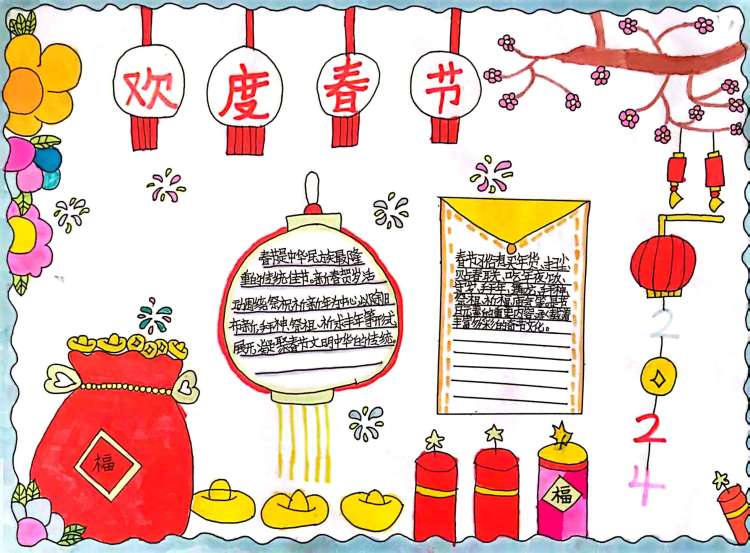 欢度春节
春节是中华民族最隆
重的传统佳节。新春贺岁活
动围绕祭祝祈新年为中心,以除旧
布新,拜神、祭祖、祈求丰年等形式
展开,凝聚春节文明中华的传统。
春节习俗有买年货、扫尘、
贴春联、吃年夜饭、
守岁、拜年、舞龙、拜神
祭祖、祈福
丰富多彩的春节文化。
2
2
4
福
福